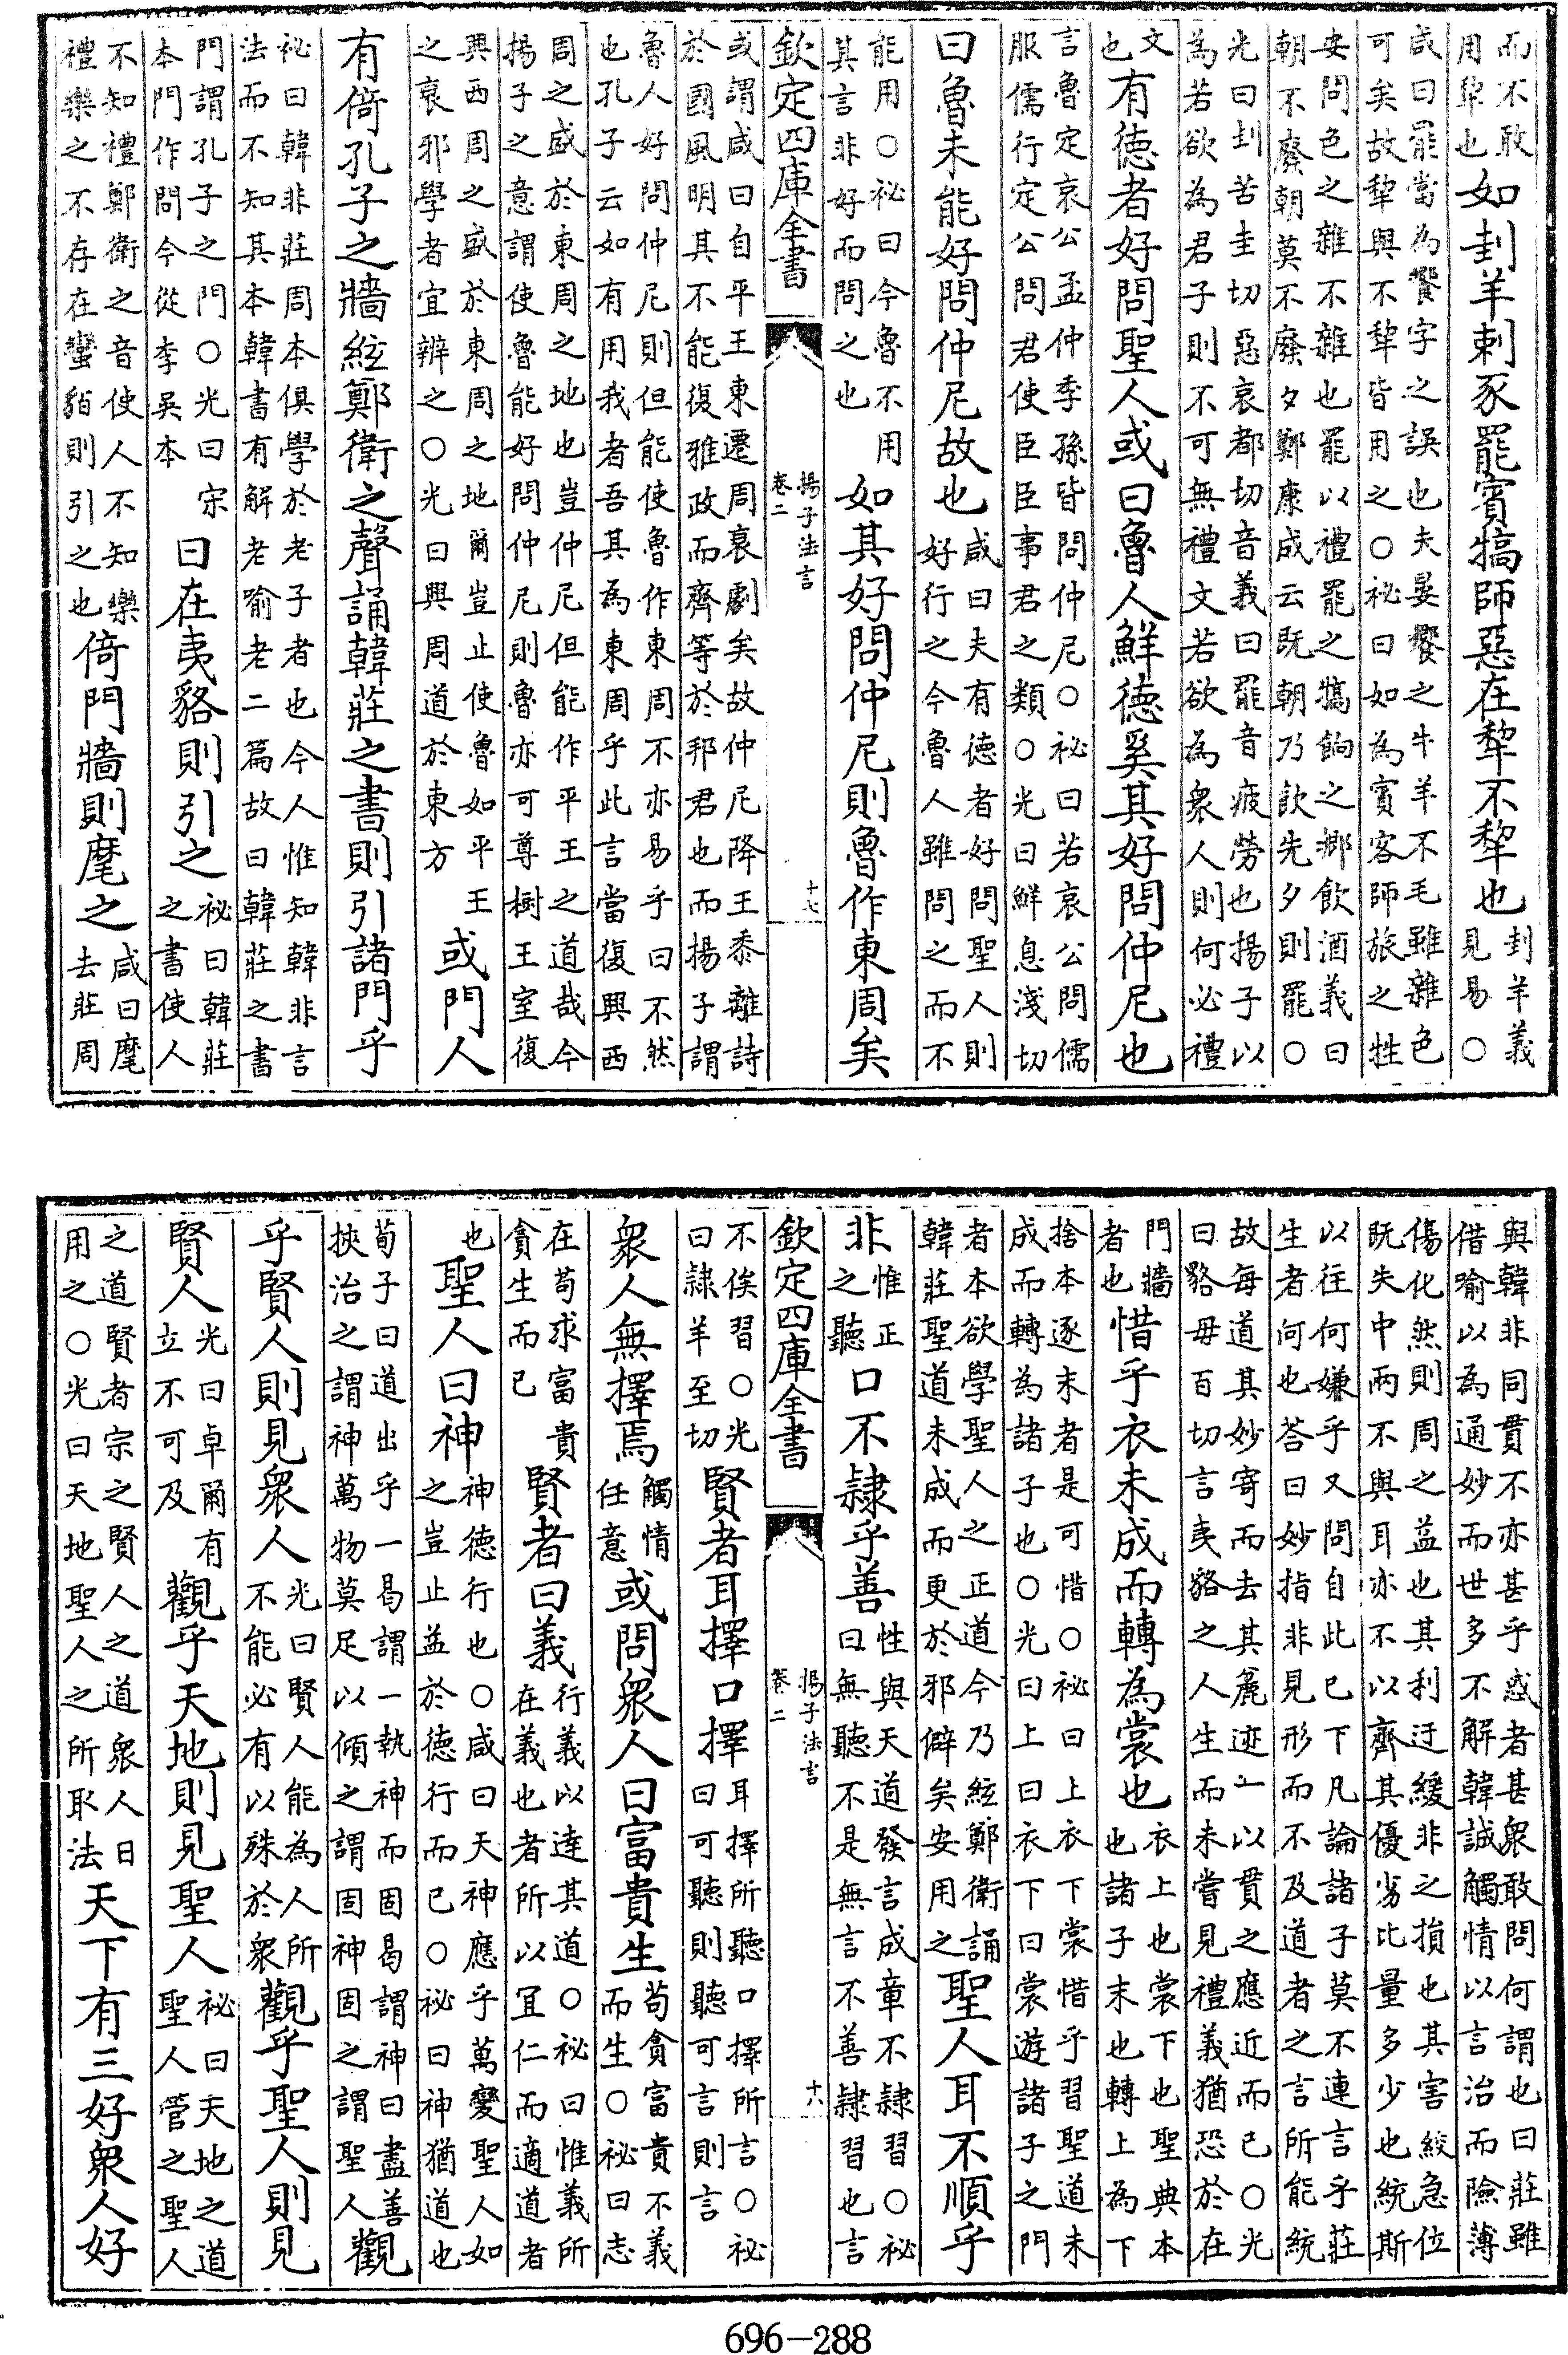 而不敢用犂也如刲羊刺豕罷賓犒師惡在犂不犂也刲羊義見易○
咸曰罷當為饗字之誤也夫晏饗之牛羊不毛雖雜色
可矣故犂與不犂皆用之○祕曰如為賓客師旅之牲
安問色之雜不雜也罷以禮罷之犒餉之鄉飲酒義曰
朝不廢朝莫不廢夕鄭康成云既朝乃飲先夕則罷○
光曰刲苦圭切惡哀都切音義曰罷音疲勞也揚子以
為若欲為君子則不可無禮文若欲為衆人則何必禮
文也有徳者好問聖人或曰魯人鮮徳奚其好問仲尼也
言魯定哀公孟仲季孫皆問仲尼○祕曰若哀公問儒
服儒行定公問君使臣臣事君之類○光曰鮮息淺切
曰魯未能好問仲尼故也咸曰夫有徳者好問聖人則好行之今魯人雖問之而不
能用○祕曰今魯不用其言非好而問之也如其好問仲尼則魯作東周矣
欽定四庫全書 揚子法言 卷二 十七
或謂咸曰自平王東遷周衰劇矣故仲尼降王黍離詩
於國風明其不能復雅政而齊等於邦君也而揚子謂
魯人好問仲尼則但能使魯作東周不亦易乎曰不然
也孔子云如有用我者吾其為東周乎此言當復興西
周之盛於東周之地也豈仲尼但能作平王之道哉今
揚子之意謂使魯能好問仲尼則魯亦可尊樹王室復
興西周之盛於東周之地爾豈止使魯如平王之衰邪學者宜辨之○光曰興周道於東方或門人
有倚孔子之牆絃鄭衛之聲誦韓莊之書則引諸門乎
祕曰韓非莊周本俱學於老子者也今人惟知韓非言
法而不知其本韓書有解老喻老二篇故曰韓莊之書
門謂孔子之門○光曰宋本門作問今從李吳本曰在夷貉則引之祕曰韓莊之書使人
不知禮鄭衛之音使人不知樂禮樂之不存在蠻貊則引之也倚門牆則麾之咸曰麾去莊周
與韓非同貫不亦甚乎惑者甚衆敢問何謂也曰莊雖
借喻以為通妙而世多不解韓誠觸情以言治而險薄
傷化然則周之益也其利迂緩非之損也其害絞急位
既失中兩不與耳亦不以齊其優劣比量多少也統斯
以往何嫌乎又問自此已下凡論諸子莫不連言乎莊
生者何也答曰妙指非見形而不及道者之言所能統
故每道其妙寄而去其麄迹一以貫之應近而已○光
曰貉毋百切言夷貉之人生而未嘗見禮義猶恐於在
門牆者也惜乎衣未成而轉為裳也衣上也裳下也聖典本也諸子末也轉上為下
捨本逐末者是可惜○祕曰上衣下裳惜乎習聖道未
成而轉為諸子也○光曰上曰衣下曰裳遊諸子之門
者本欲學聖人之正道今乃絃鄭衛誦韓莊聖道未成而更於邪僻矣安用之聖人耳不順乎
非惟正之聽口不隸乎善性與天道發言成章不隸習○祕曰無聽不是無言不善隸習也言
欽定四庫全書 揚子法言 卷二 十八
不俟習○光曰隸羊至切賢者耳擇口擇耳擇所聽口擇所言○祕曰可聽則聽可言則言
衆人無擇焉觸情任意或問衆人曰富貴生苟貪富貴不義而生○祕曰志
在苟求富貴貪生而已賢者曰義行義以達其道○祕曰惟義所在義也者所以宜仁而適道者
也聖人曰神神德行也○咸曰天神應乎萬變聖人如之豈止益於徳行而已○祕曰神猶道也
荀子曰道出乎一曷謂一執神而固曷謂神曰盡善挾治之謂神萬物莫足以傾之謂固神固之謂聖人觀
乎賢人則見衆人光曰賢人能為人所不能必有以殊於衆觀乎聖人則見
賢人光曰卓爾有立不可及觀乎天地則見聖人祕曰天地之道聖人管之聖人
之道賢者宗之賢人之道衆人日用之○光曰天地聖人之所取法天下有三好衆人好
696-288